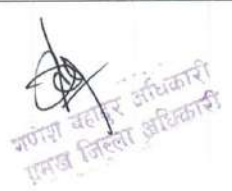 गणेश बहादुर अधिकारी
प्रमुख जिल्ला अधिकारी